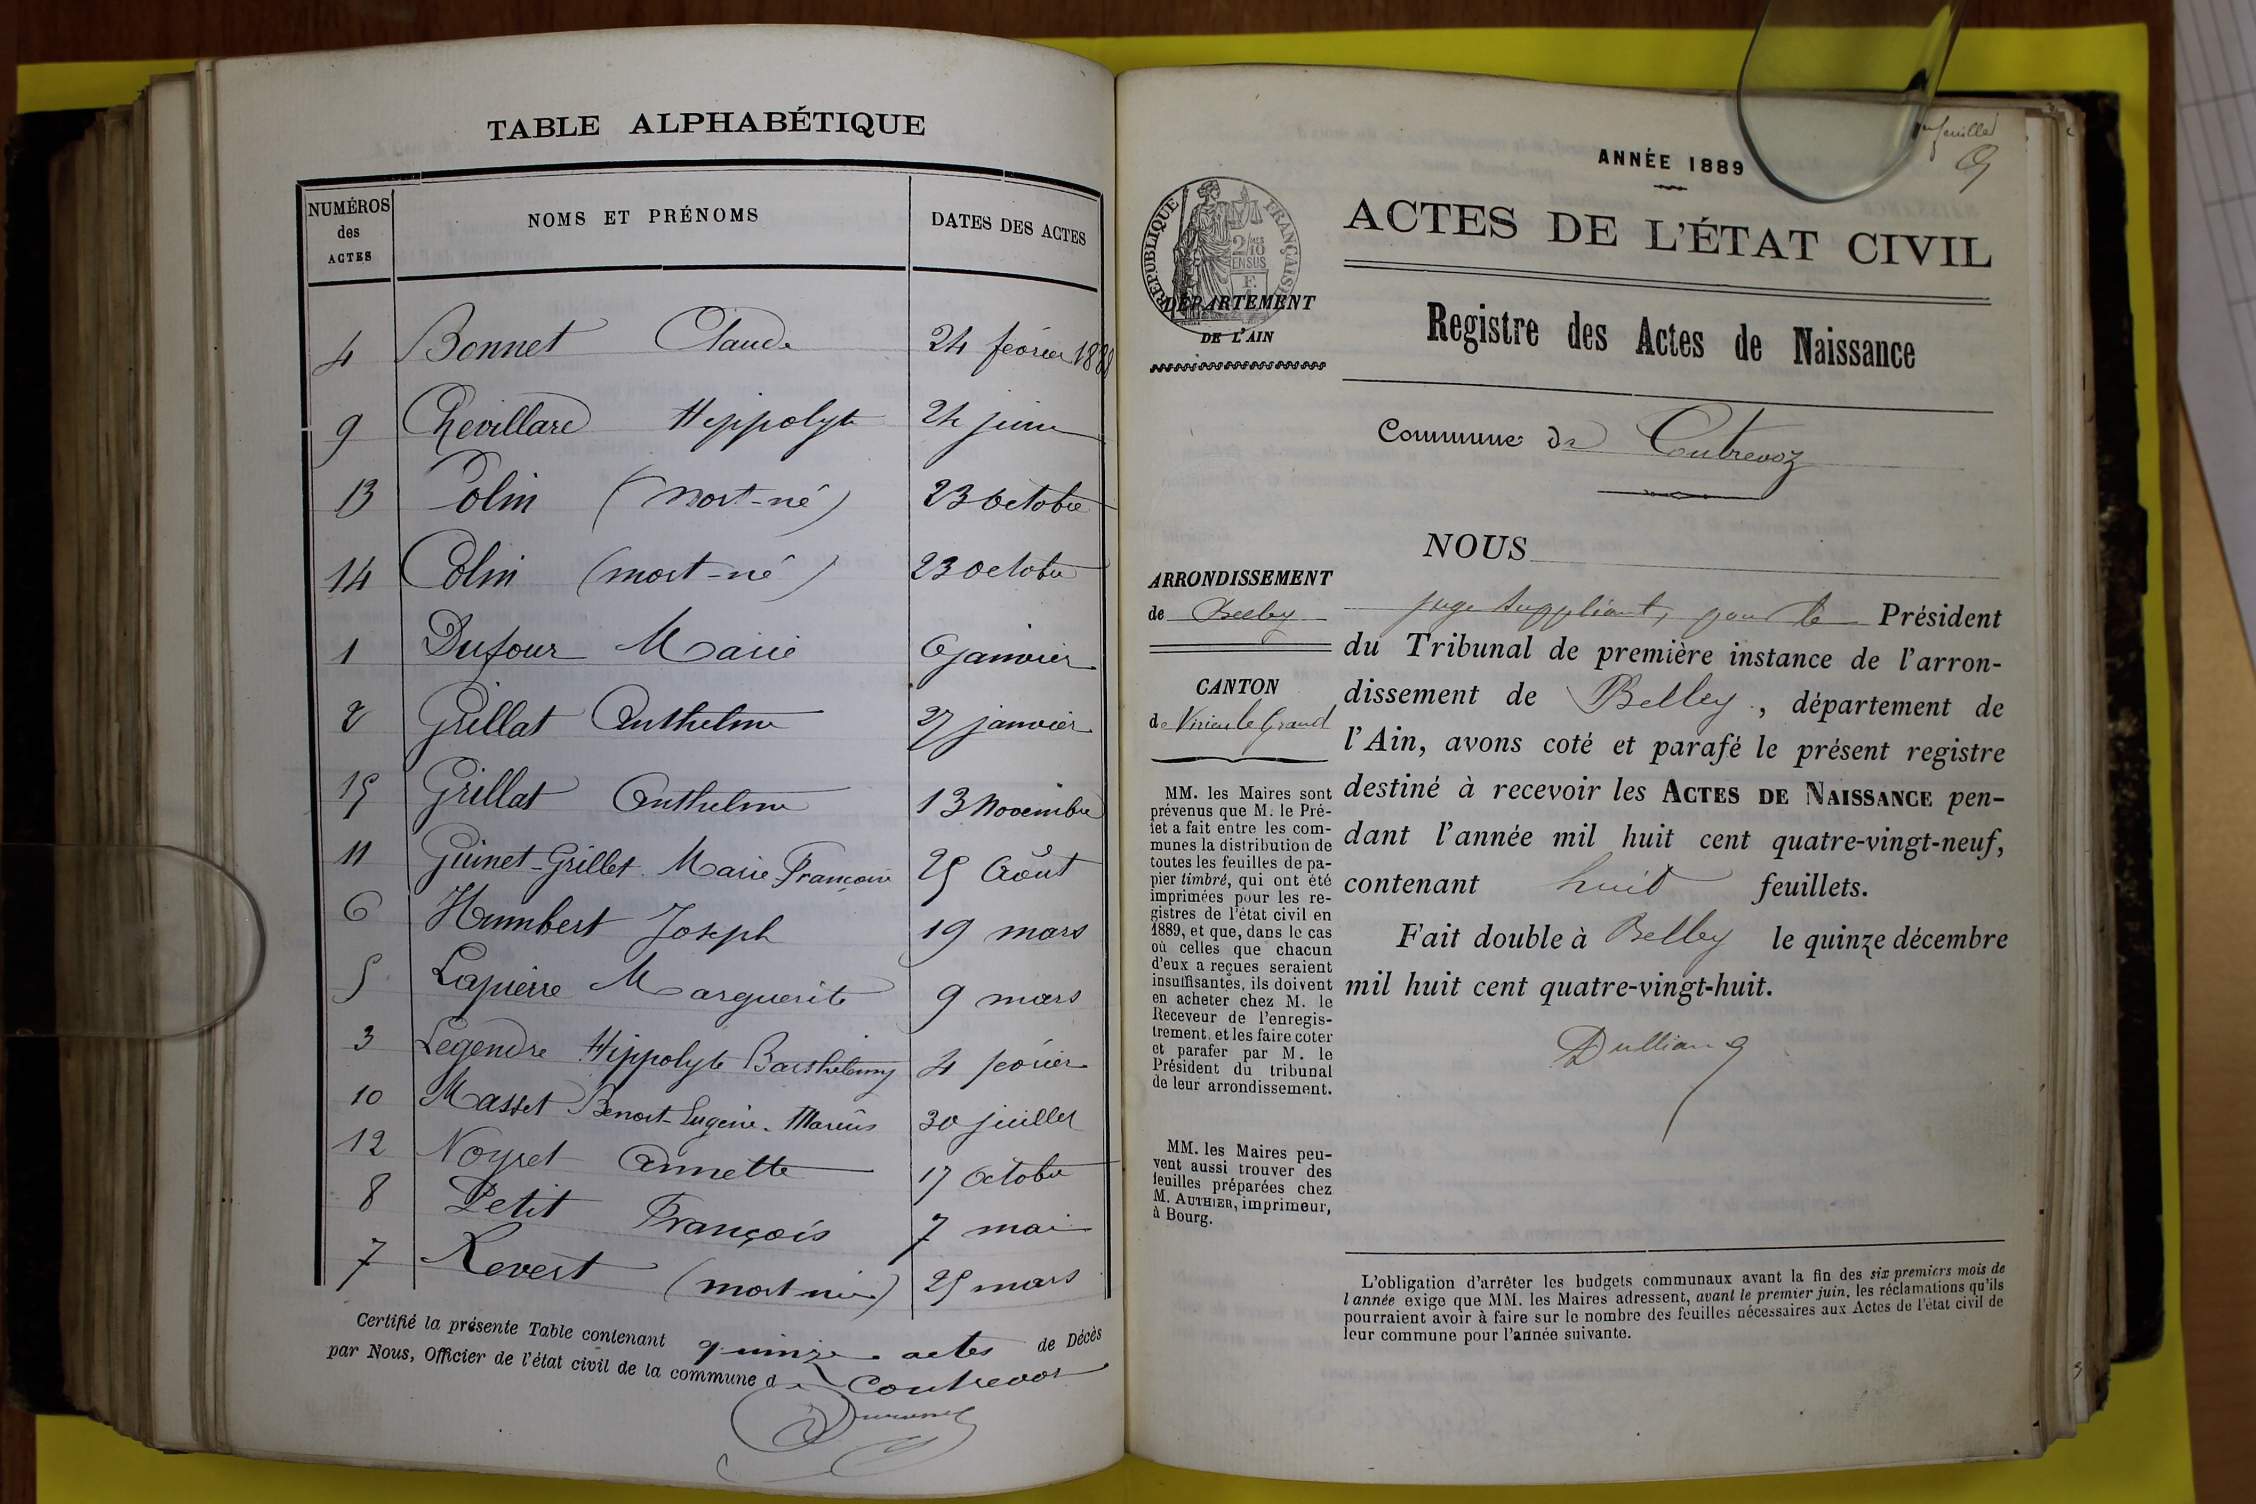 TABLE ALPHABÉTIQUE
NUMÉROS des ACTES NOMS ET PRÉNOMS DATES DES ACTES
4 Bonnet Claude 24 février 1888
9 Chevillard Hippolyte 24 juin
13 Colin (mort-né) 23 octobre
14 Colin (mort-né) 23 octobre
1 Dufour Marie 6 janvier
2 Grillat Anthelme 27 janvier
15 Grillat Anthelme 13 Novembre
11 Guinet-Grillet Marie Françoise 25 Août
6 Humbert Joseph 19 mars
5 Lapierre Marguerite 9 mars
3 Legendre Hippolyte Barthélemy 4 février
10 Masset Benoit-Eugène-Marius 30 juillet
12 Noyret Annette 17 octobre
8 Petit François 7 mai
7 Revert (mort-née) 25 mars
Certifié la présente Table contenant quinze actes de Décès
par Nous, Officier de l'état civil de la commune de Contrevoz
feuillet
ANNÉE 1889
ACTES DE L'ÉTAT CIVIL
RÉPUBLIQUE FRANÇAISE
2/10 EN SUS
DÉPARTEMENT
DE L'AIN
Registre des Actes de Naissance
Commune de Contrevoz
ARRONDISSEMENT
de Belley
CANTON
de Virieu le Grand
MM. les Maires sont
prévenus que M. le Pré-
fet a fait entre les com-
munes la distribution de
toutes les feuilles de pa-
pier timbré, qui ont été
imprimées pour les re-
gistres de l'état civil en
1889, et que, dans le cas
où celles que chacun
d'eux a reçues seraient
insuffisantes, ils doivent
en acheter chez M. le
Receveur de l'enregis-
trement, et les faire coter
et parafer par M. le
Président du tribunal
de leur arrondissement.
MM. les Maires peu-
vent aussi trouver des
feuilles préparées chez
M. AUTHIER, imprimeur,
à Bourg.
NOUS
juge suppléant, pour le Président
du Tribunal de première instance de l'arron-
dissement de Belley, département de
l'Ain, avons coté et parafé le présent registre
destiné à recevoir les ACTES DE NAISSANCE pen-
dant l'année mil huit cent quatre-vingt-neuf,
contenant huit feuillets.
Fait double à Belley le quinze décembre
mil huit cent quatre-vingt-huit.
L'obligation d'arrêter les budgets communaux avant la fin des six premiers mois de
l'année exige que MM. les Maires adressent, avant le premier juin, les réclamations qu'ils
pourraient avoir à faire sur le nombre des feuilles nécessaires aux Actes de l'état civil de
leur commune pour l'année suivante.